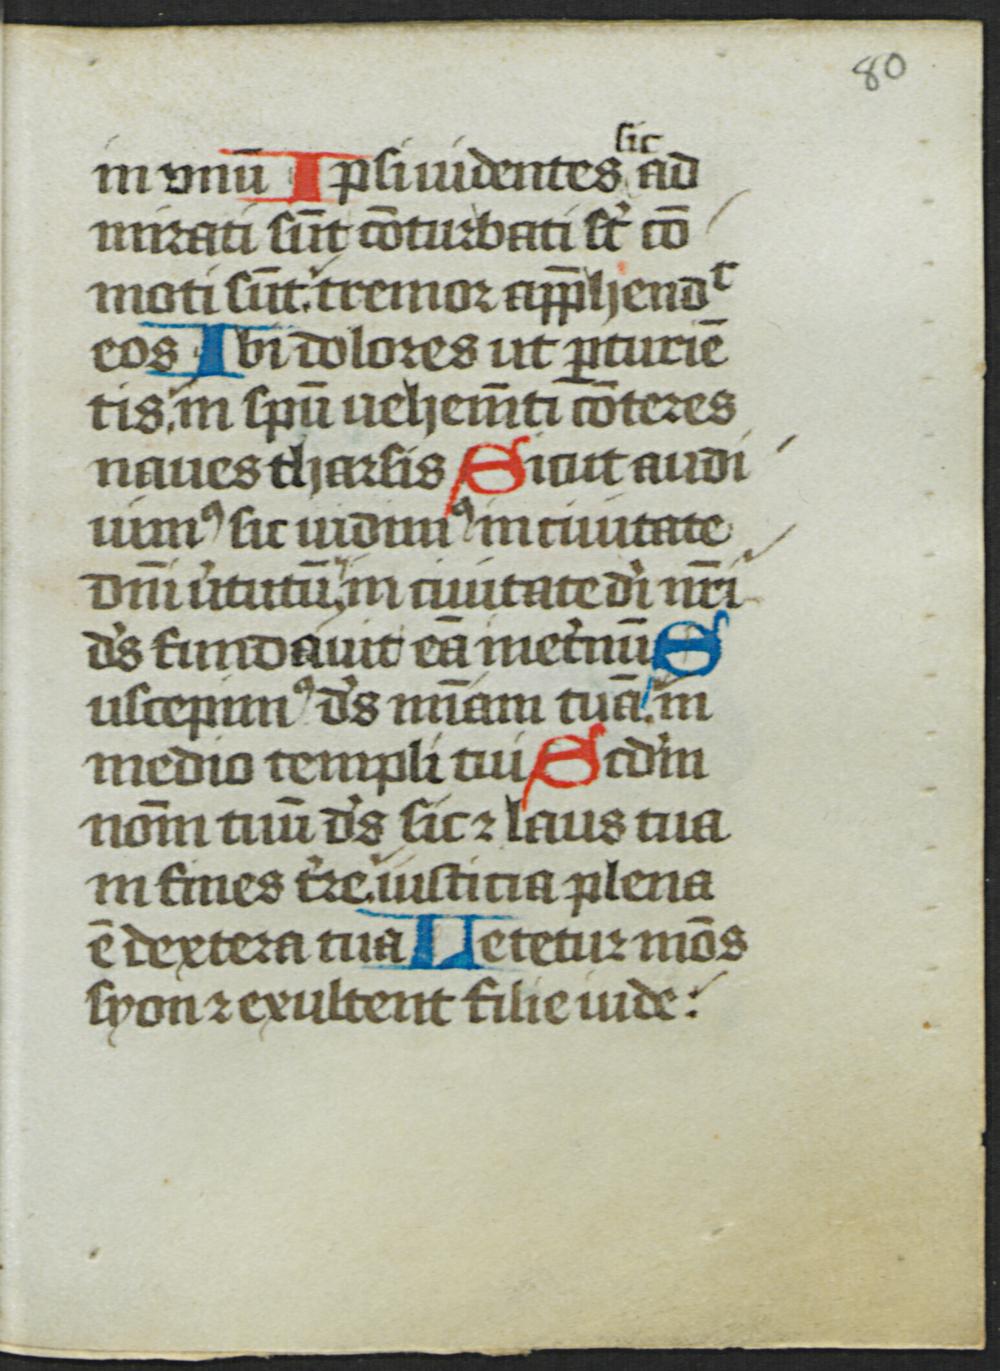 80
in vnū Ipsi uidentes sic ad
mirati sūt cōturbati st̄ cō
moti sūt. tremor app̄hendᵗ
eos Ibi dolores ut ꝑturiē
tis. in spū uehem̄ti cōteres
naues tharsis Sicut audi
uimꝰ sic uidimꝰ in ciuitate
dn̄i u̓tutū. in ciuitate di̓ nr̄i
d̓s fundauit eā in et̓nū S
uscepimꝰ d̓s mīam tuā. in
medio templi tui Scd̓m
nom̄ tuū d̓s sic ⁊ laus tua
in fines t̓re. iusticia plena
ē dextera tua Letetur mōs
syon ⁊ exultent filie iude: